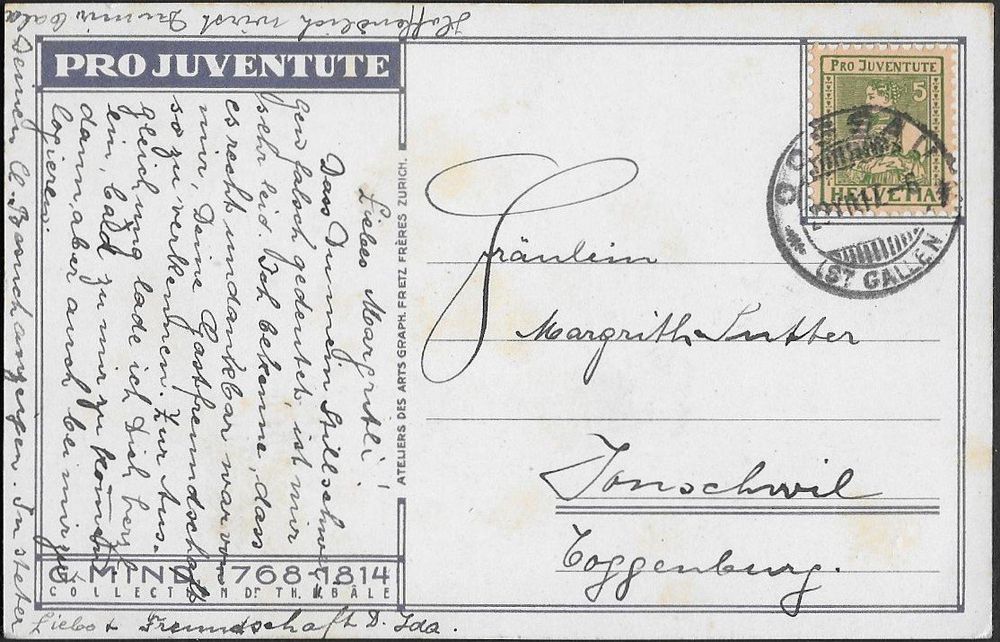 PRO JUVENTUTE
Liebes Margritli!
Dass Du mein Stillschwei
gen falsch gedeutet ist mir
sehr leid. Ich bekenne, dass
es recht undankbar war von
mir, Deine Gastfreundschaft
so zu verkennen. Zur Aus-
gleichung lade ich Dich herzl
ein, bald zu mir zu kommen
dann, aber auch bei mir zu
logieren.
Hoffendlich wirst Du mir bald
Deinen lb. Besuch anzeigen. In steter
Liebe & Freundschaft D. Ida.
G. MIND 1768-1814
COLLECTION DR TH. BÂLE
ATELIERS DES ARTS GRAPH. FRETZ FRÈRES ZURICH.
PRO JUVENTUTE
5
HELVETIA
(ST GALLEN)
Fräulein
Margrith Sutter
Jonschwil
Toggenburg.